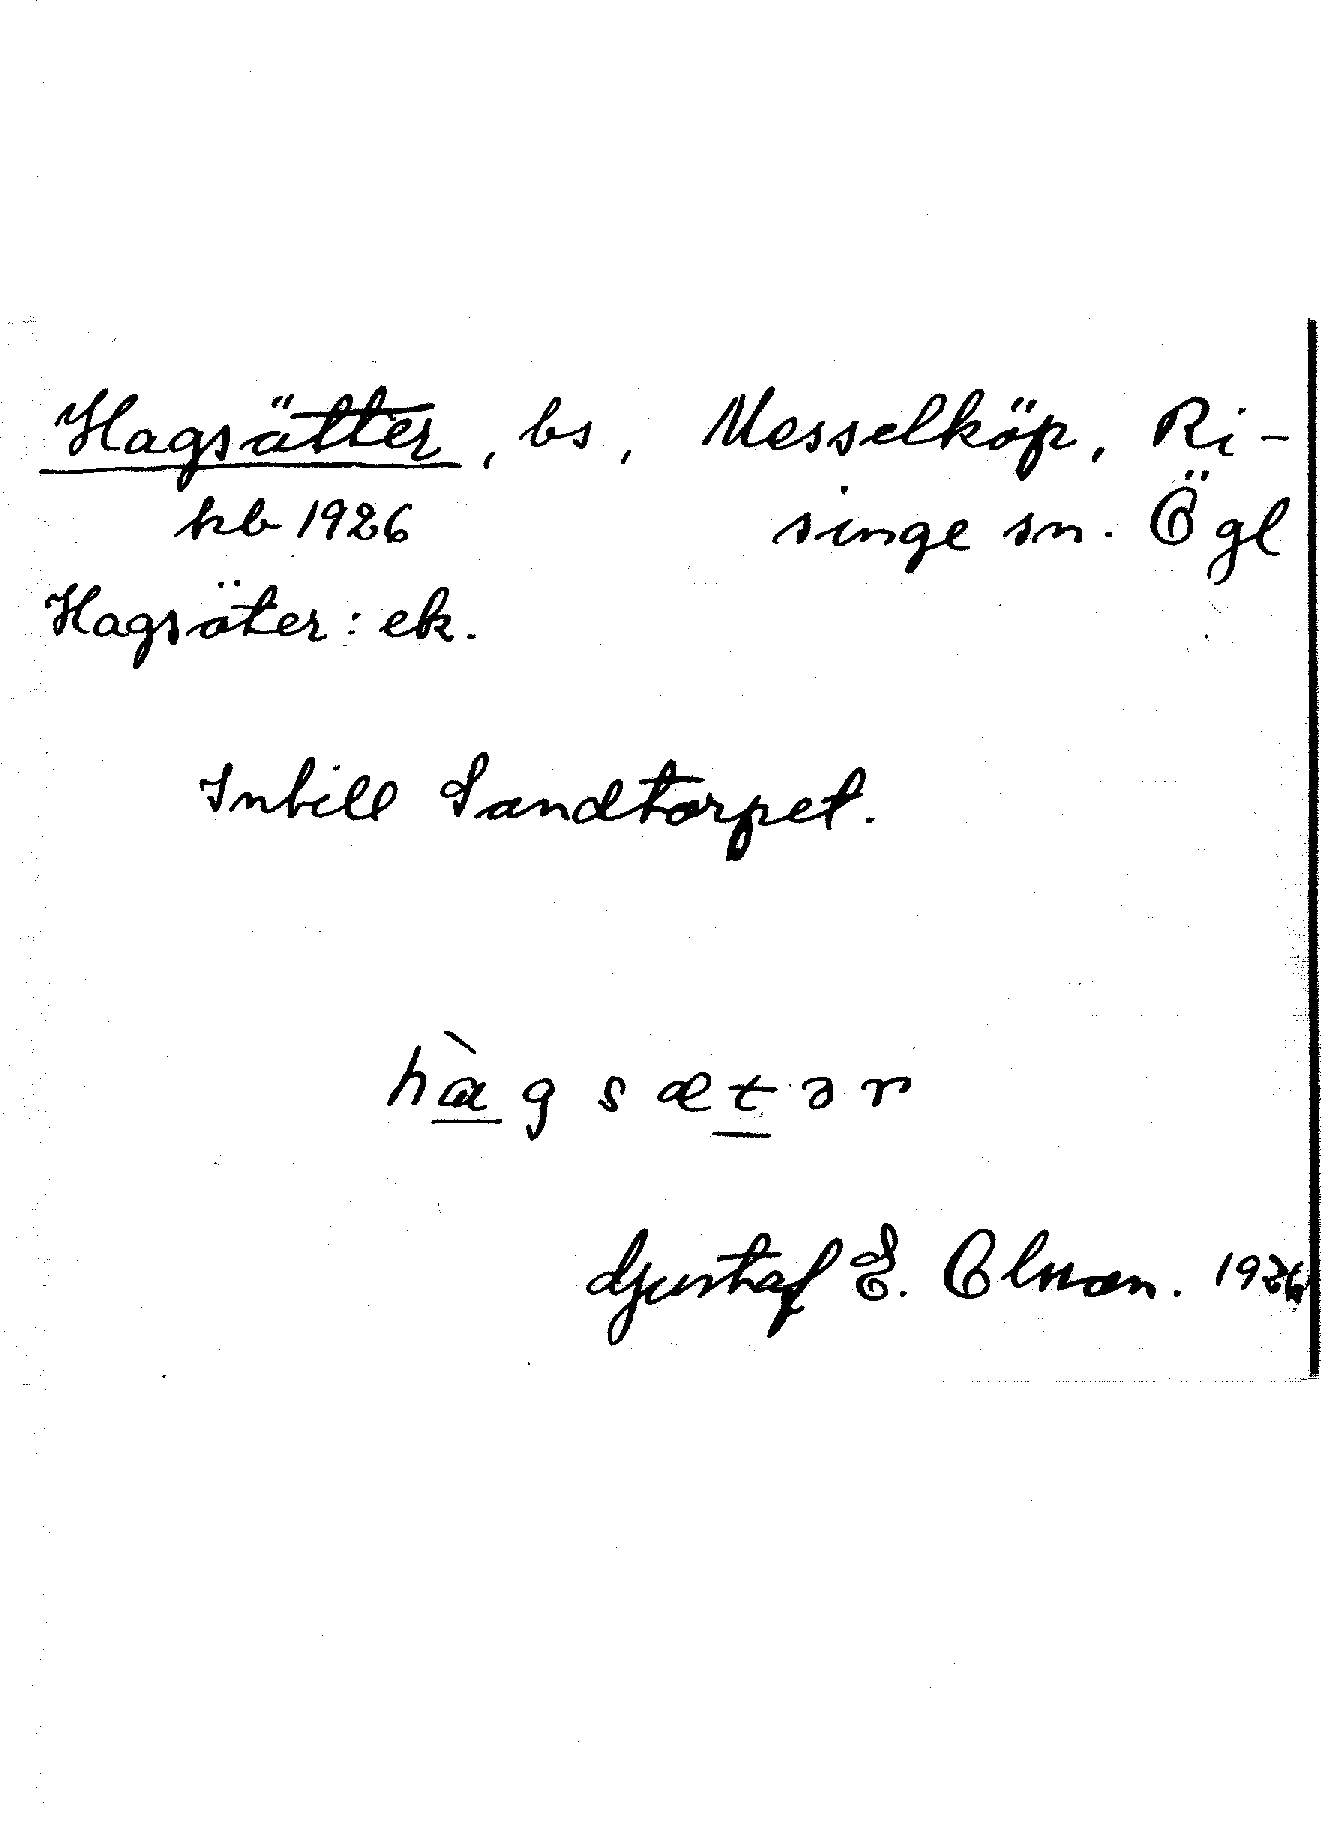 Hagsätter, bs, Messelköp, Ri-
kb 1926 singe sn. Ögl
Hagsäter: ek.
Intill Sandtorpet.
hàgsætər
Gustaf E. Olsson. 1926